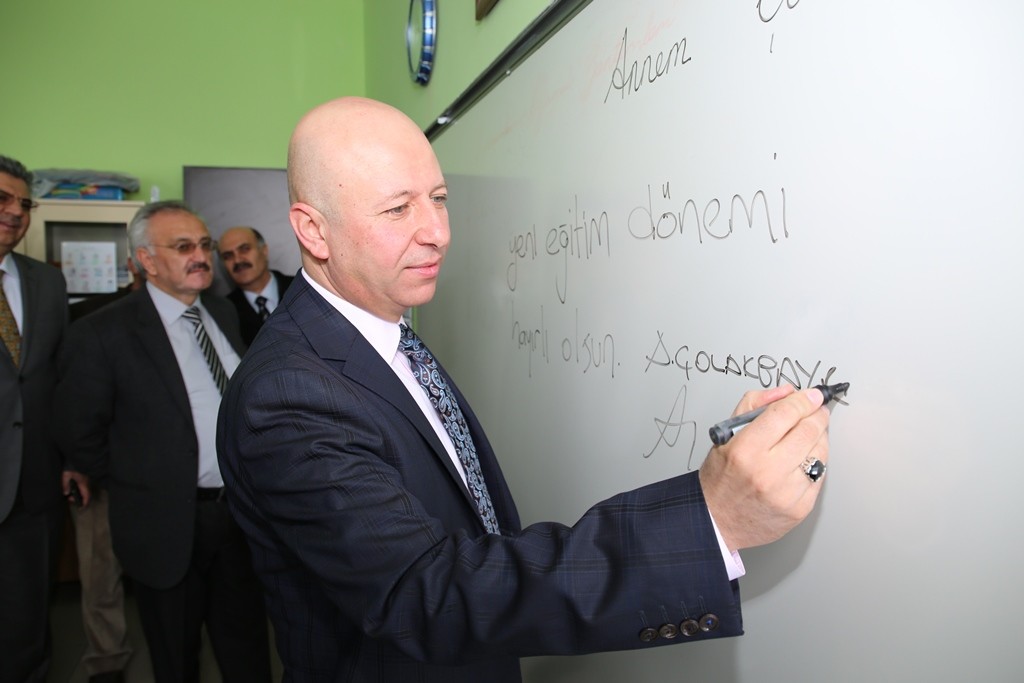 Annem
yeni eğitim dönemi
hayırlı olsun. A.ÇOLAKBAY